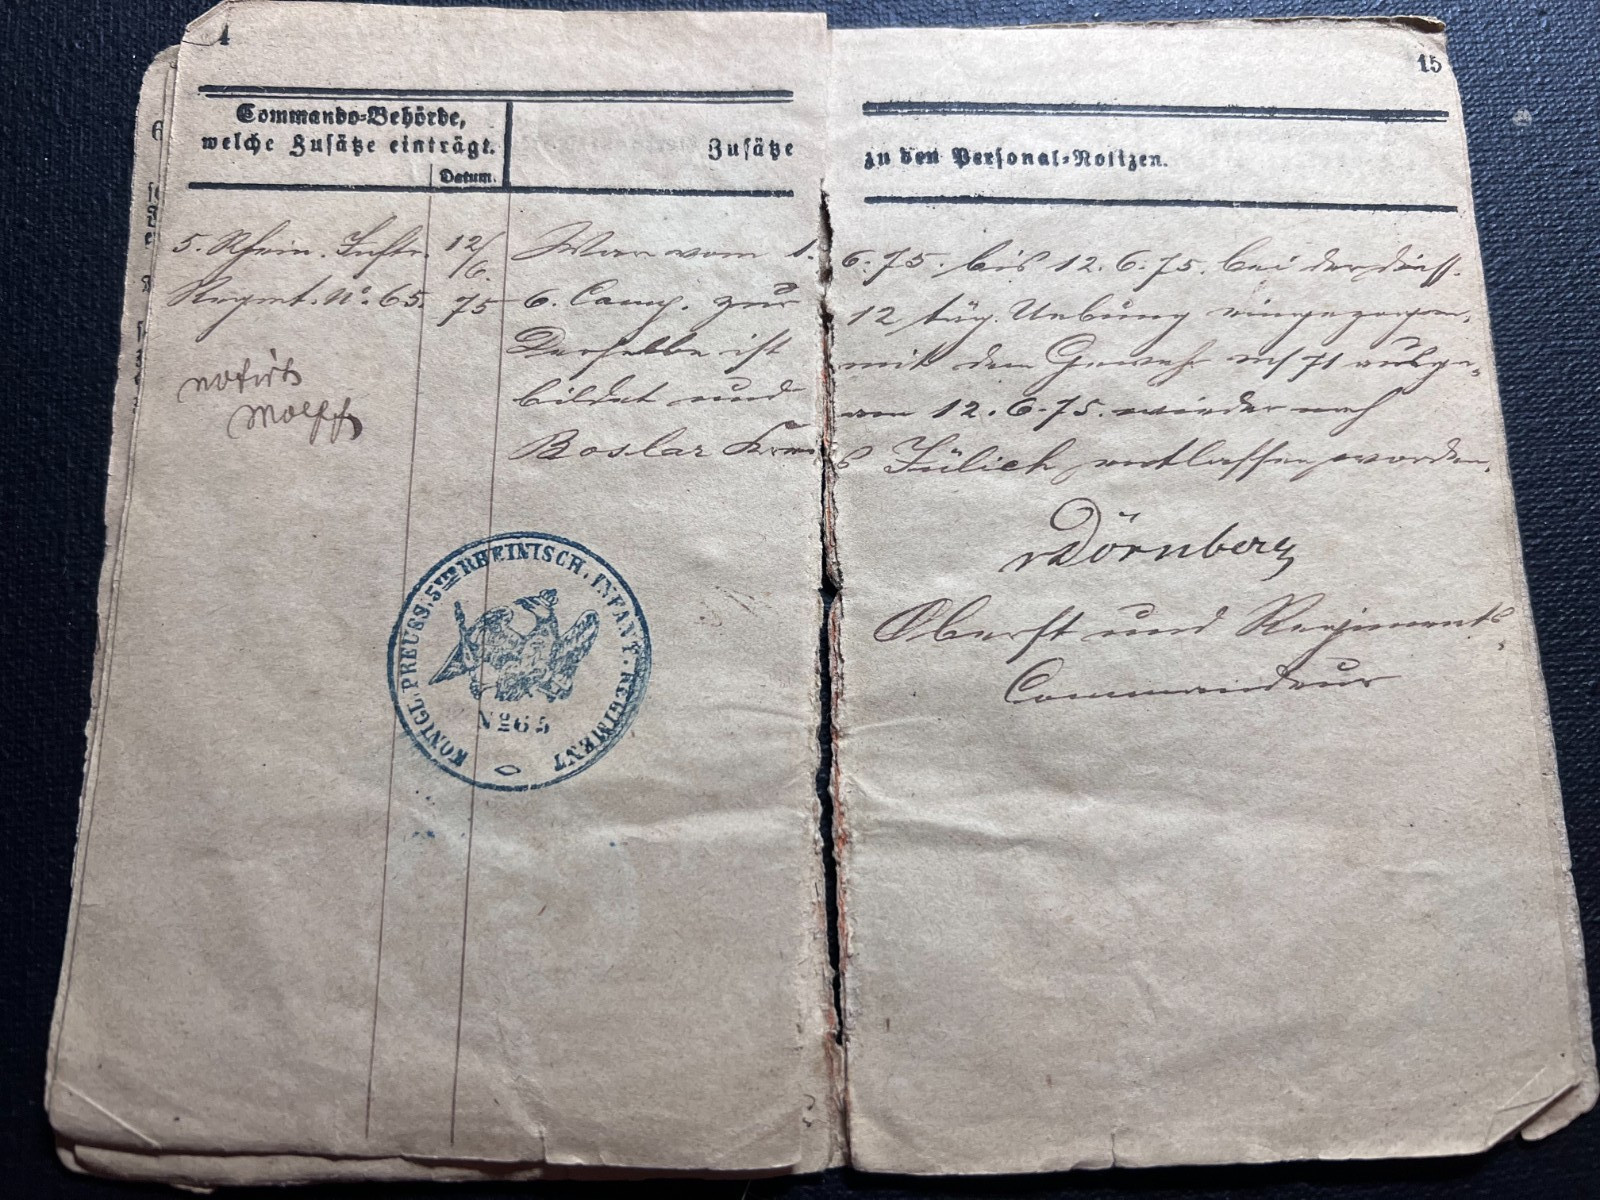 4
Commando-Behörde,
welche Zusätze einträgt.
Datum.
Zusätze
zu den Personal-Notizen.
15
5. Rhein. Inftr. 12/6. War vom 1. 6. 75. bis 12. 6. 75. bei der diess.
Regmt. No. 65. 75 6. Comp. zur 12 täg. Uebung eingezogen.
Derselbe ist mit dem Gewehr M/71 ausge-
bildet und am 12. 6. 75. wieder nach
Boslar Kreis Jülich entlassen worden.
notirt
vDörnberg
Oberst und Regiments
Commandeur
KÖNIGL. PREUSS. 5TES RHEINISCH. INFANT. REGIMENT
No 65